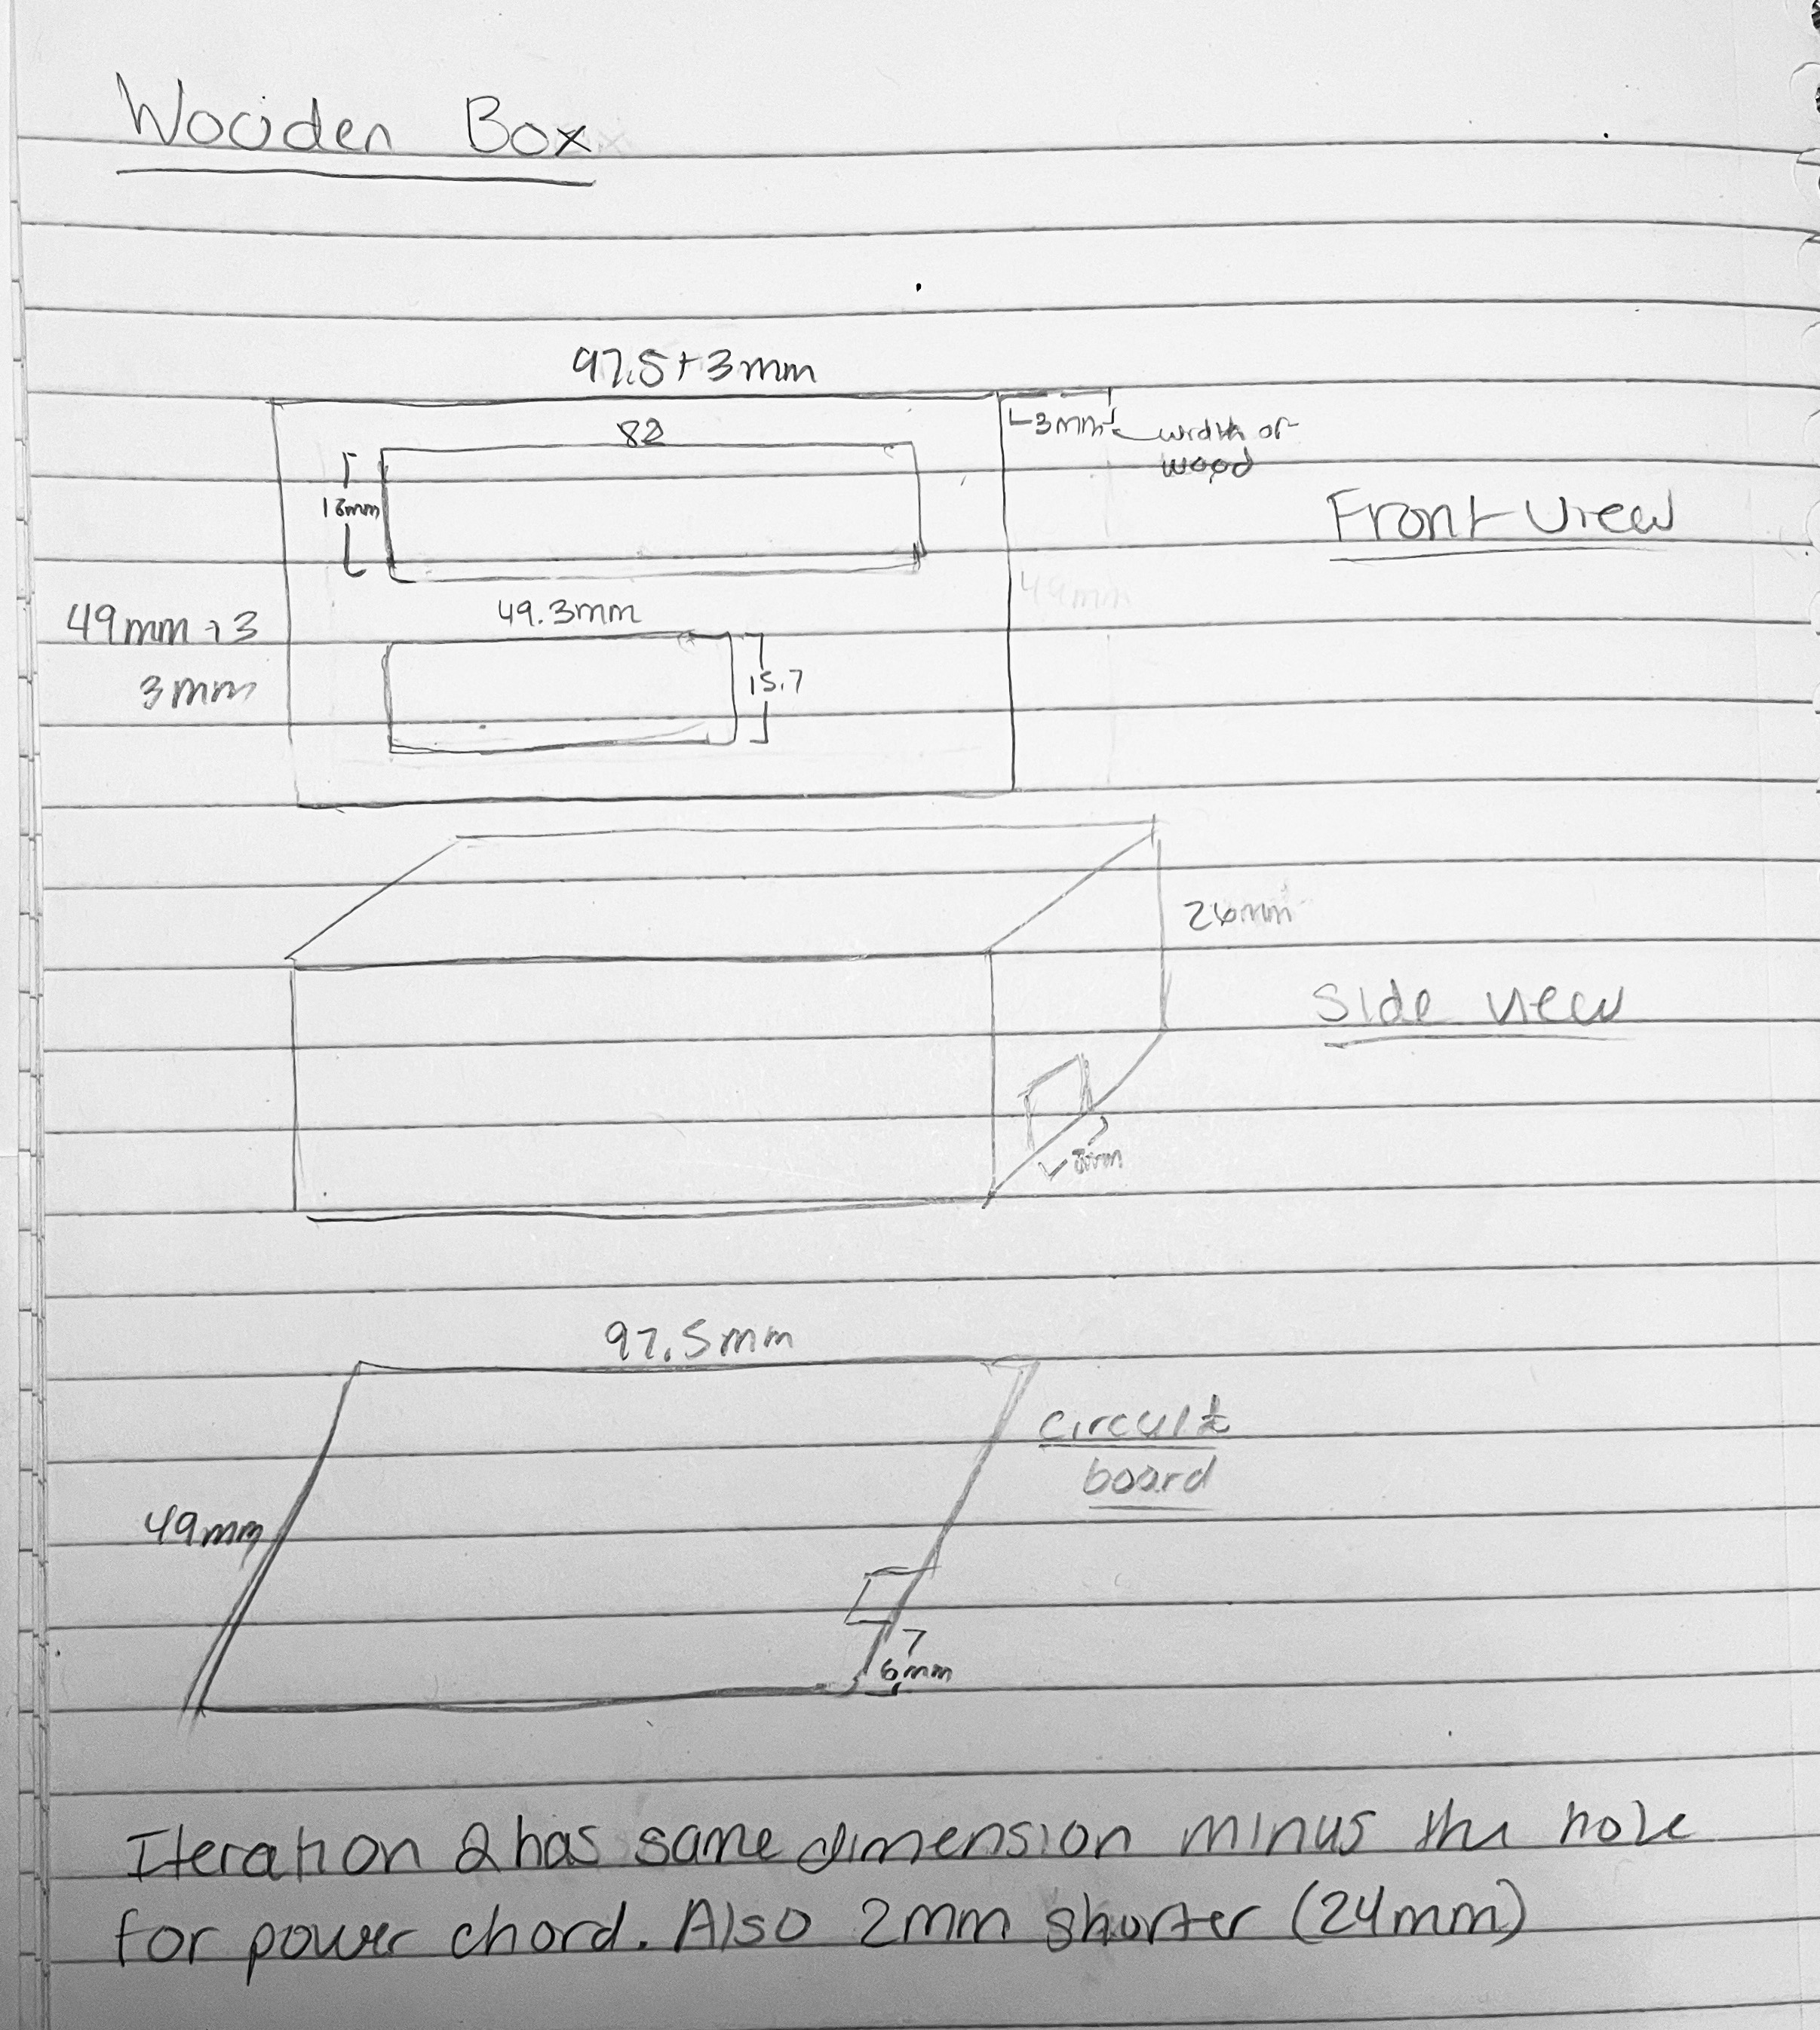 Wooden Box
97.5+3mm
82
3mm
width of
wood
18mm
Front view
49.3mm
44mm
49mm +3
3mm
15.7
26mm
Side view
8mm
97.5mm
circuit
board
49mm
6mm
Iteration 2 has same dimension minus the hole
for power chord. Also 2mm shorter (24mm)